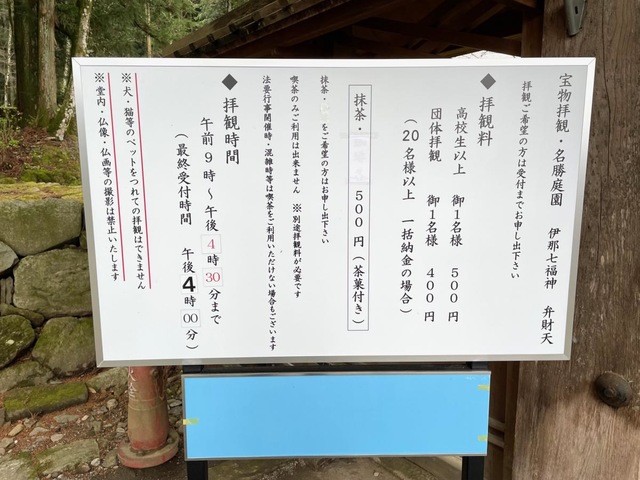 宝物拝観・名勝庭園 伊那七福神 弁財天
拝観ご希望の方は受付までお申し出下さい
◆拝観料
高校生以上 御1名様 500円
団体拝観 御1名様 400円
(20名様以上 一括納金の場合)
抹茶・ 500円(茶菓付き)
抹茶・ をご希望の方はお申し出下さい
喫茶のみご利用は出来ません ※別途拝観料が必要です
法要行事開催時・混雑時等は喫茶をご利用いただけない場合もございます
◆拝観時間
午前9時〜午後4時30分まで
(最終受付時間 午後4時00分)
※犬・猫等のペットをつれての拝観はできません
※堂内・仏像・仏画等の撮影は禁止いたします